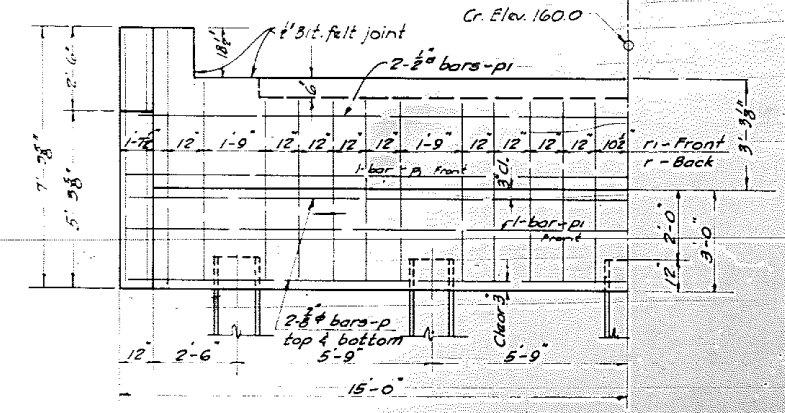 Cr. Elev. 160.0
½" Bit. felt joint
18½"
2-½"⌀ bars-p1
2'-6"
6"
7'-9⅝"
5'-3⅝"
3'-3⅜"
12" 1'-9" 12" 12" 12" 12" 1'-9" 12" 12" 12" 12" 10½" r1-Front
r-Back
1-bar-p1 Front
3"Cl.
1-bar-p1
Front
2'-0"
3'-0"
12"
Clear 3"
bars-p
top & bottom
12" 2'-6" 5'-9" 5'-9"
15'-0"